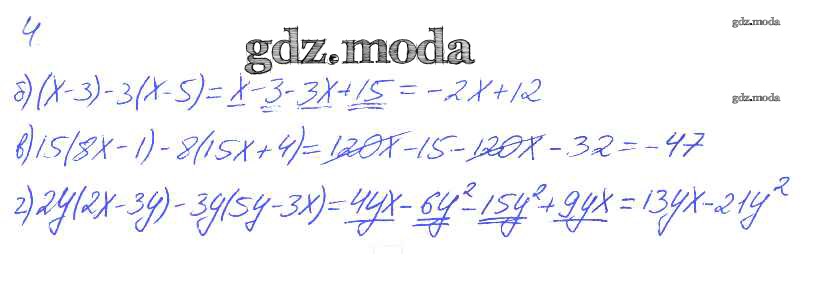 4
gdz.moda
gdz.moda
б) (x-3)-3(x-5)=x-3-3x+15=-2x+12
gdz.moda
в) 15(8x-1)-8(15x+4)=120x-15-120x-32=-47
г) 2y(2x-3y)-3y(5y-3x)=4yx-6y²-15y²+9yx=13yx-21y²